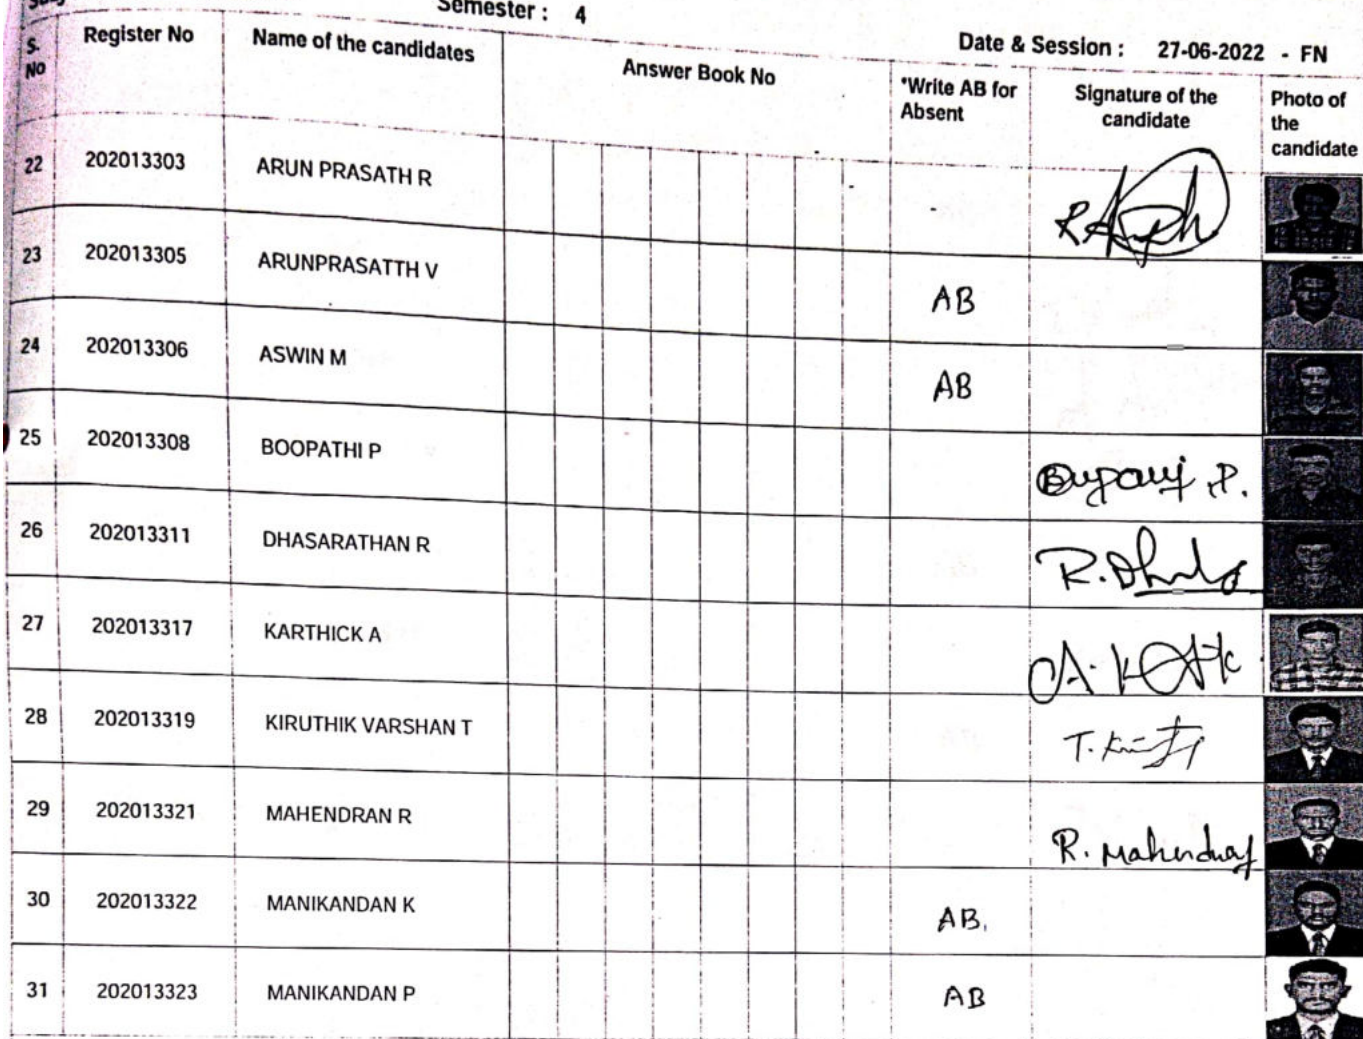 Semester : 4
Date & Session : 27-06-2022 - FN
S. No Register No Name of the candidates Answer Book No *Write AB for Absent Signature of the candidate Photo of the candidate
22 202013303 ARUN PRASATH R
23 202013305 ARUNPRASATTH V AB
24 202013306 ASWIN M AB
25 202013308 BOOPATHI P
26 202013311 DHASARATHAN R
27 202013317 KARTHICK A
28 202013319 KIRUTHIK VARSHAN T
29 202013321 MAHENDRAN R R. Mahendran
30 202013322 MANIKANDAN K AB.
31 202013323 MANIKANDAN P AB